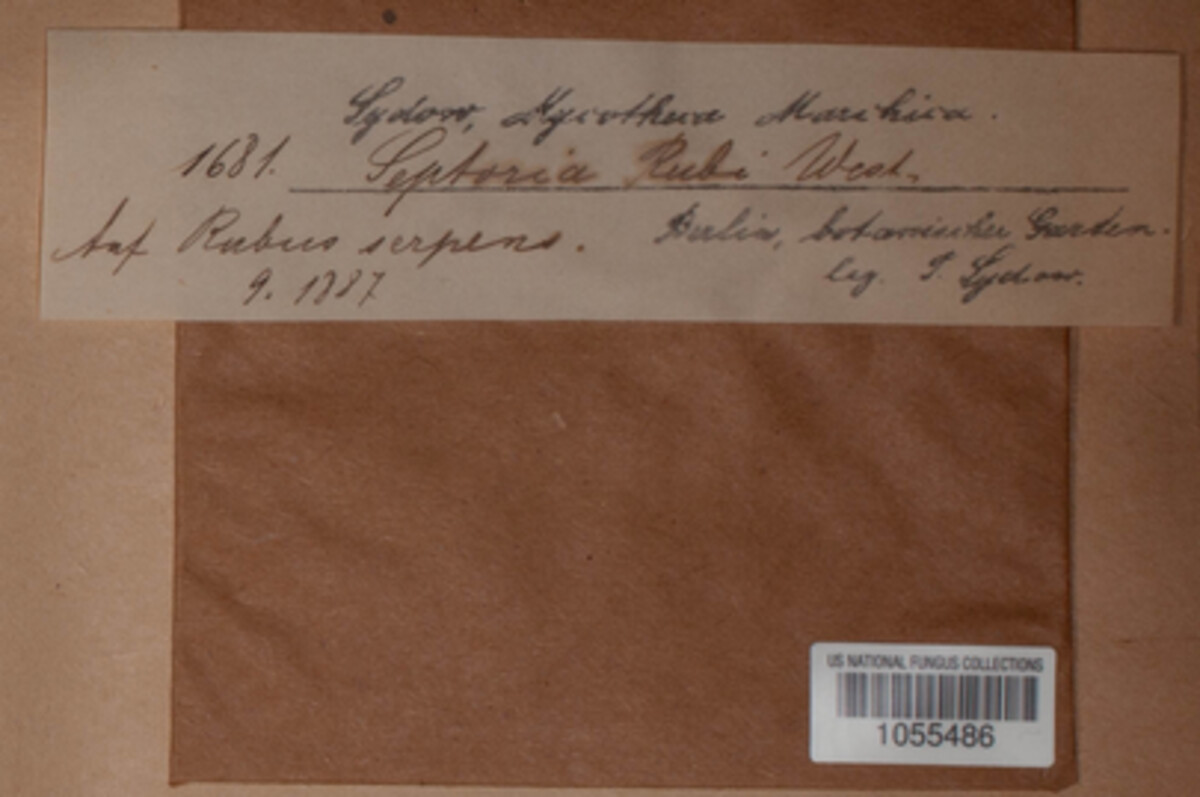 Sydow, Mycotheca Marchica.
1681. Septoria Rubi West.
Auf Rubus serpens. Berlin, botanischer Garten.
9. 1887 leg. P. Sydow.
US NATIONAL FUNGUS COLLECTIONS
1055486